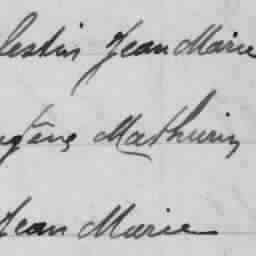 lestin Jean Marie
ugène Mathurin
Jean Marie